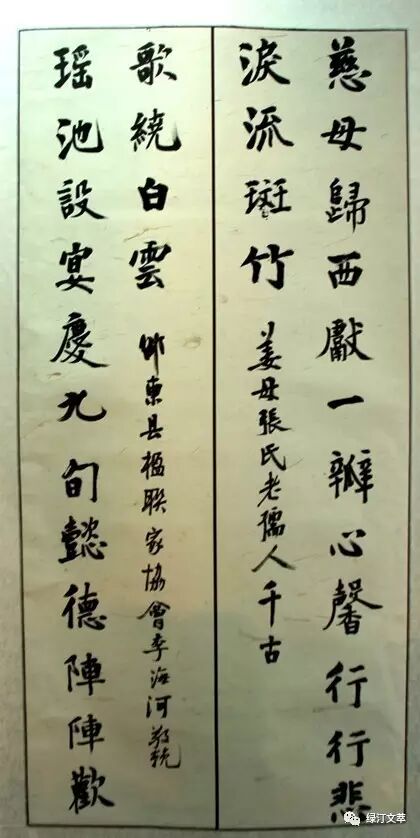 慈母歸西獻一瓣心馨行行悲
淚流斑竹
姜母張氏老孺人千古
瑶池設宴慶九旬懿德陣陣歡
歌繞白雲
邵東县楹联家協會李海河敬輓
绿汀文萃